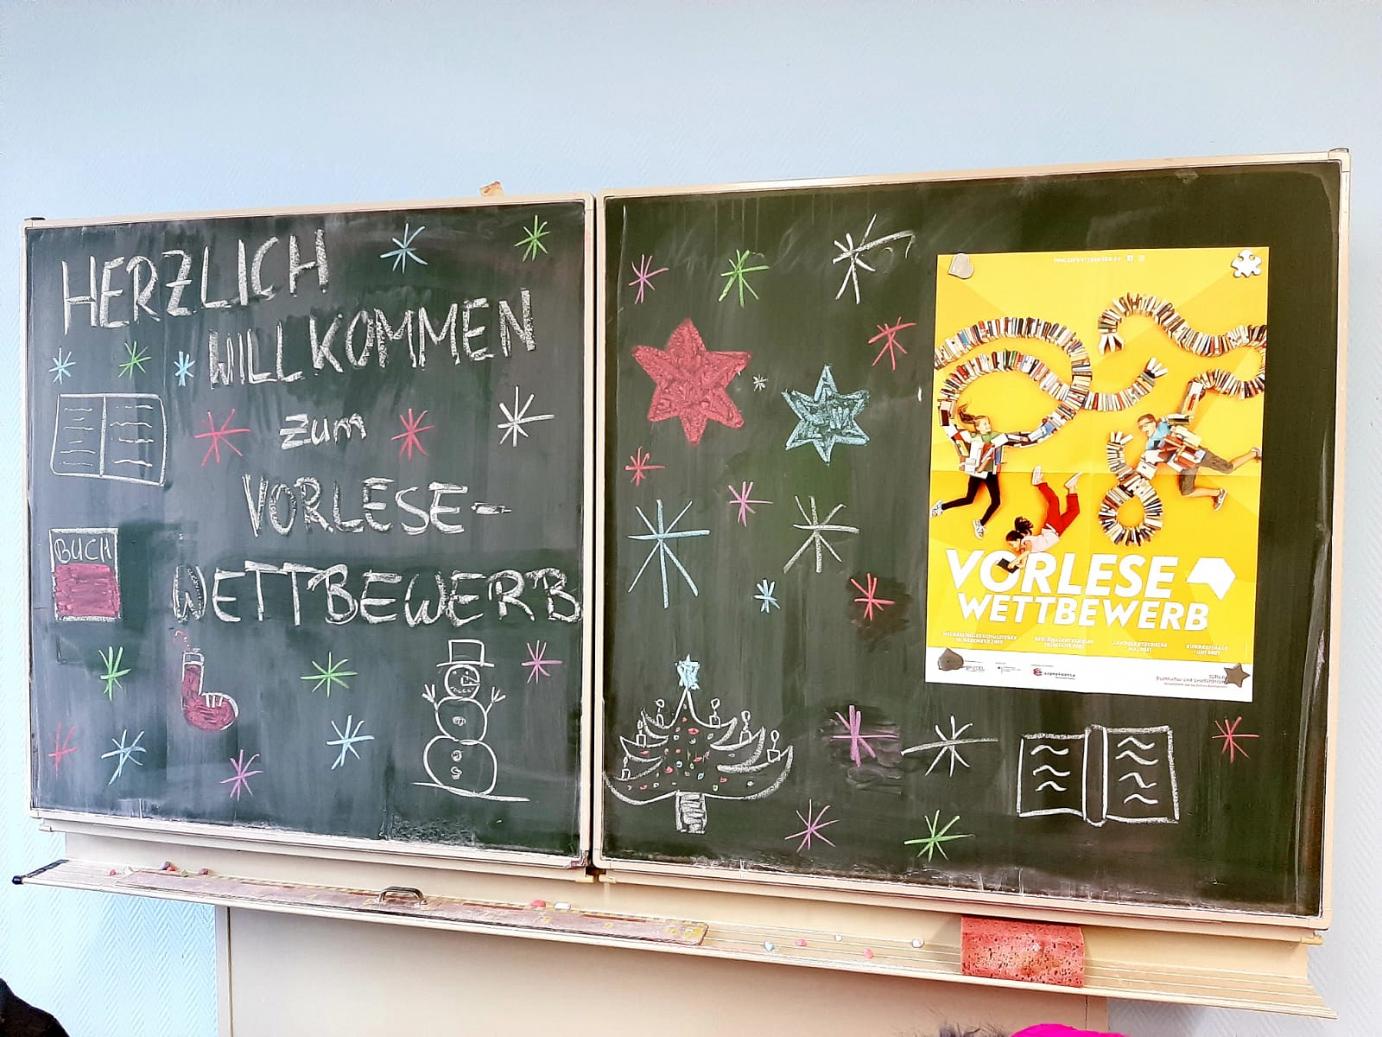 HERZLICH
WILLKOMMEN
zum
VORLESE-
WETTBEWERB
BUCH
VORLESE
WETTBEWERB